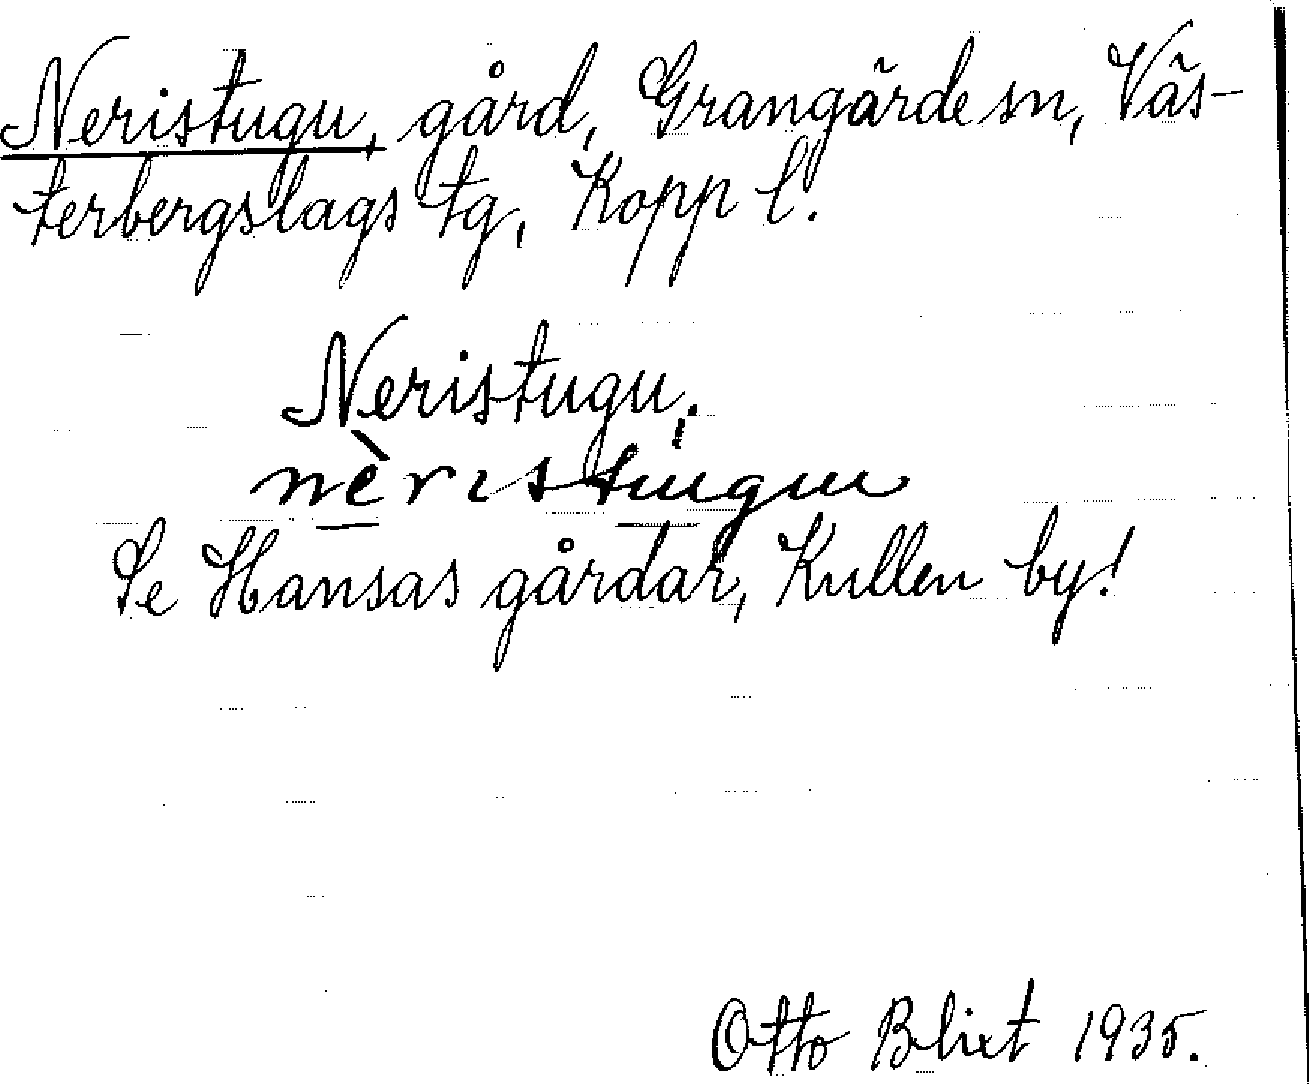 Neristugu, gård, Grangärde sn, Väs-
terbergslags tg, Kopp l.
Neristugu.
nèristugu
Se Hansas gårdar, Kullen by!
Otto Blixt 1935.